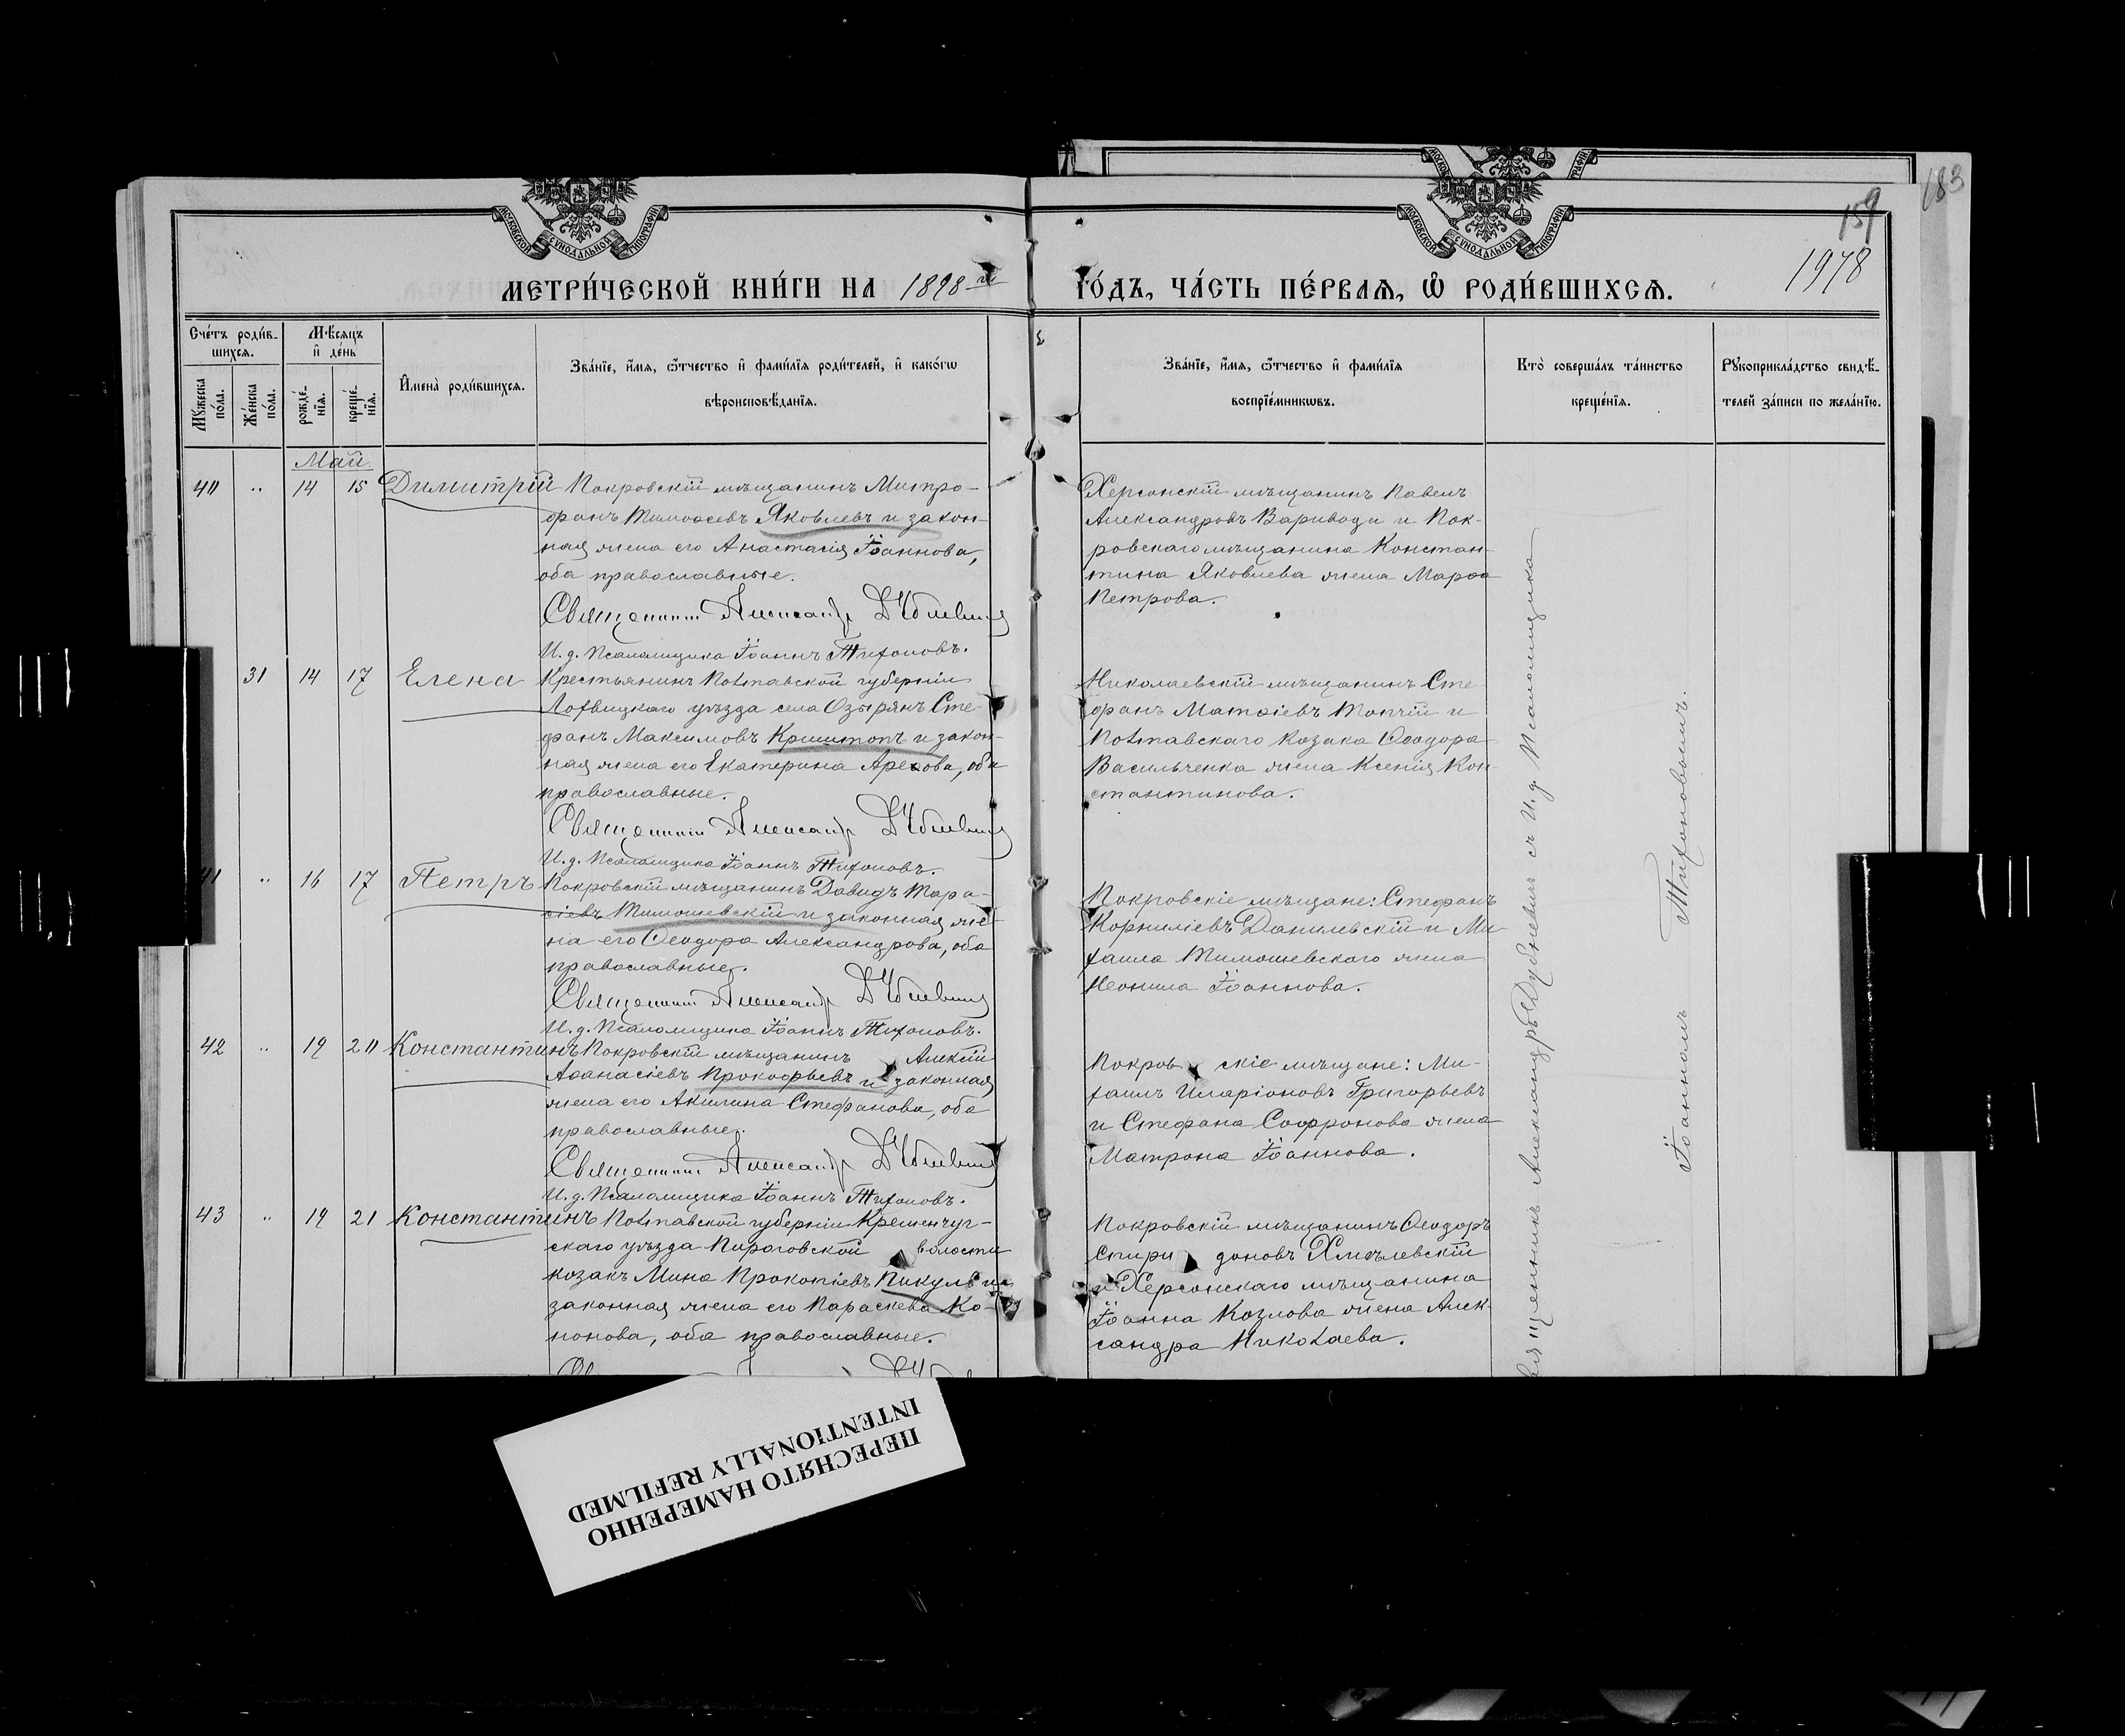 183
159
1978
МОСКОВСКОЙ СѴНОДАЛЬНОЙ ТИПОГРАФІИ
МОСКОВСКОЙ СѴНОДАЛЬНОЙ ТИПОГРАФІИ
МЕТРИ́ЧЕСКОЙ КНИ́ГИ НА 1898 го
ГО́ДЪ, ЧА́СТЬ ПЕ́РВАѦ, Ѡ҆ РОДИ́ВШИХСѦ.
Сче́тъ роди́в-
шихсѧ.
Мꙋ́жеска по́ла.
Же́нска по́ла.
Мѣ́сѧцъ
и҆ де́нь
рожде́-
нїѧ.
креще́-
нїѧ.
И҆мена̀ роди́вшихсѧ.
Зва́нїе, и҆́мѧ, ѻ҆́тчество и҆ фами́лїѧ роди́телей, и҆ како́гѡ
вѣроисповѣ́данїѧ.
Зва́нїе, и҆́мѧ, ѻ҆́тчество и҆ фами́лїѧ
воспрїе́мникѡвъ.
Кто̀ соверша́лъ та́инство
креще́нїѧ.
Рꙋкоприкла́дство свидѣ́-
телей за́писи по жела́нїю.
Май
40 " 14 15 Димитрій
Покровскій мѣщанинъ Митро-
фанъ Тимоѳеевъ Яковлевъ и закон-
ная жена его Анастасія Іоаннова,
оба православные.
Священникъ Александр Дубневич
И. д. Псаломщика Іоаннъ Тихоновъ.
Херсонскій мѣщанинъ Павелъ
АлександровъВаривода и Пок-
ровскаго мѣщанина Констан-
тина Яковлева жена Марѳа
Петрова.
31 14 17 Елена
Крестьянинъ Полтавской губерніи
Лохвицкаго уѣзда села Озырянъ Сте-
фанъ Максимовъ Кришторъ и закон-
ная жена его Екатерина Арефова, оба
православные.
Священникъ Александр Дубневич
И. д. Псаломщика Іоаннъ Тихоновъ.
Николаевскій мѣщанинъ Сте-
фанъ Матѳіевъ Топчій и
Полтавскаго козака Ѳеодора
Васильченка жена Ксенія Кон-
стантинова.
41 " 16 17 Петръ
Покровскій мѣщанинъ Давидъ Тара-
сіевъ Тимошевскій и законная же-
на его Ѳеодора Александрова, оба
православные.
Священникъ Александр Дубневич
И. д. Псаломщика Іоаннъ Тихоновъ.
Покровскіе мѣщане: Стефанъ
Корниліевъ Данилевскій и Ми-
хаила Тимошевскаго жена
Неонила Іоаннова.
42 " 19 20 Константинъ
Покровскій мѣщанинъ Алексій
Аѳанасіевъ Прокофьевъ и законная
жена его Акилина Стефанова, оба
православные.
Священникъ Александр Дубневич
И. д. Псаломщика Іоаннъ Тихоновъ.
Покровскіе мѣщане: Ми-
хаилъ Иларіоновъ Григорьевъ
и Стефана Софронова жена
Матрона Іоаннова.
43 " 19 21 Константинъ
Полтавской губерніи Кременчуг-
скаго уѣзда Пироговской волости
козакъ Мина Прокопіевъ Пикуль и
законная жена его Параскева Ко-
нонова, оба православные.
Покровскій мѣщанинъ Ѳеодоръ
Спиридоновъ Хмѣлевскій
и Херсонскаго мѣщанина
Іоанна Козлова жена Алек-
сандра Николаева.
Священникъ Александръ Дубневичъ съ И. д. Псаломщика
Іоанномъ Тихоновымъ.
ПЕРЕСНЯТО НАМЕРЕННО
INTENTIONALLY REFILMED